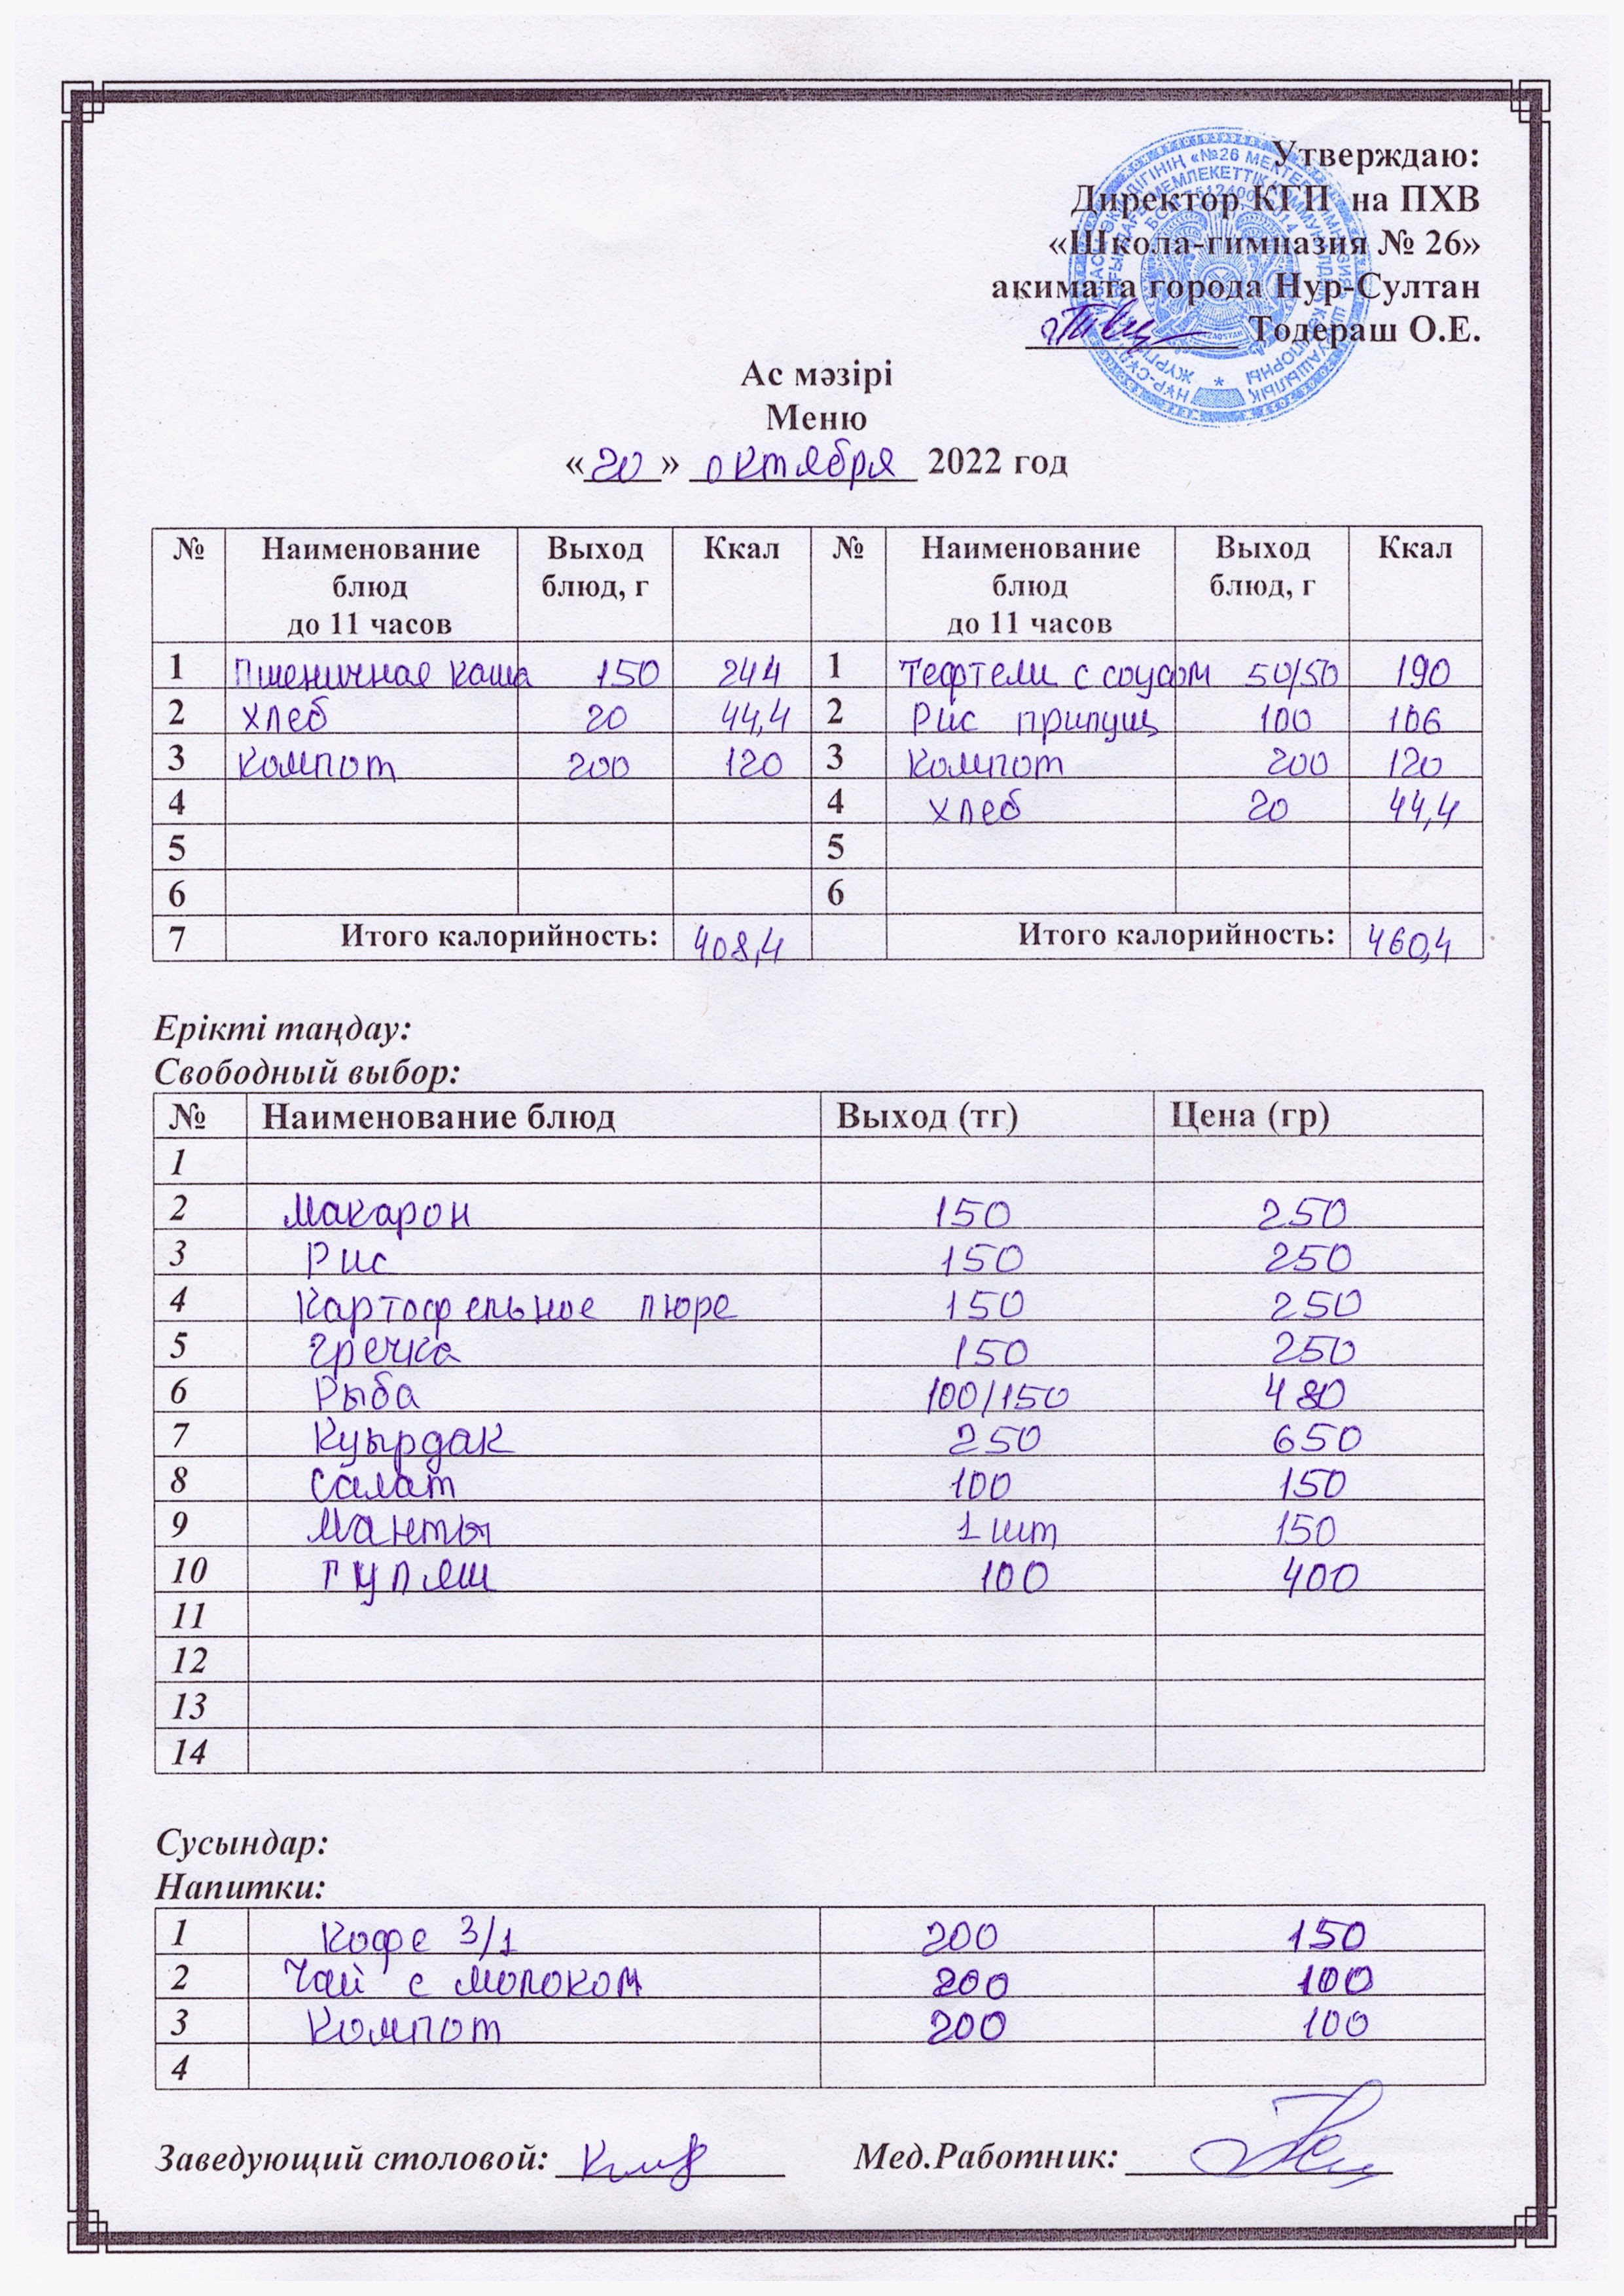 Утверждаю:
Директор КГП на ПХВ
«Школа-гимназия № 26»
акимата города Нур-Султан
Тодераш О.Е.
Ас мәзірі
Меню
«20» октября 2022 год
№ Наименование блюд до 11 часов Выход блюд, г Ккал № Наименование блюд до 11 часов Выход блюд, г Ккал
1 Пшеничная каша 150 244 1 Тефтели с соусом 50/50 190
2 хлеб 20 44,4 2 Рис припущ 100 106
3 Компот 200 120 3 Компот 200 120
4 4 хлеб 20 44,4
5 5
6 6
7 Итого калорийность: 408,4 Итого калорийность: 460,4
Ерікті таңдау:
Свободный выбор:
№ Наименование блюд Выход (тг) Цена (гр)
1
2 Макарон 150 250
3 Рис 150 250
4 Картофельное пюре 150 250
5 Гречка 150 250
6 Рыба 100/150 480
7 Куырдак 250 650
8 Салат 100 150
9 Манты 1 шт 150
10 Гуляш 100 400
11
12
13
14
Сусындар:
Напитки:
1 Кофе 3/1 200 150
2 Чай с молоком 200 100
3 Компот 200 100
4
Заведующий столовой: Мед.Работник: